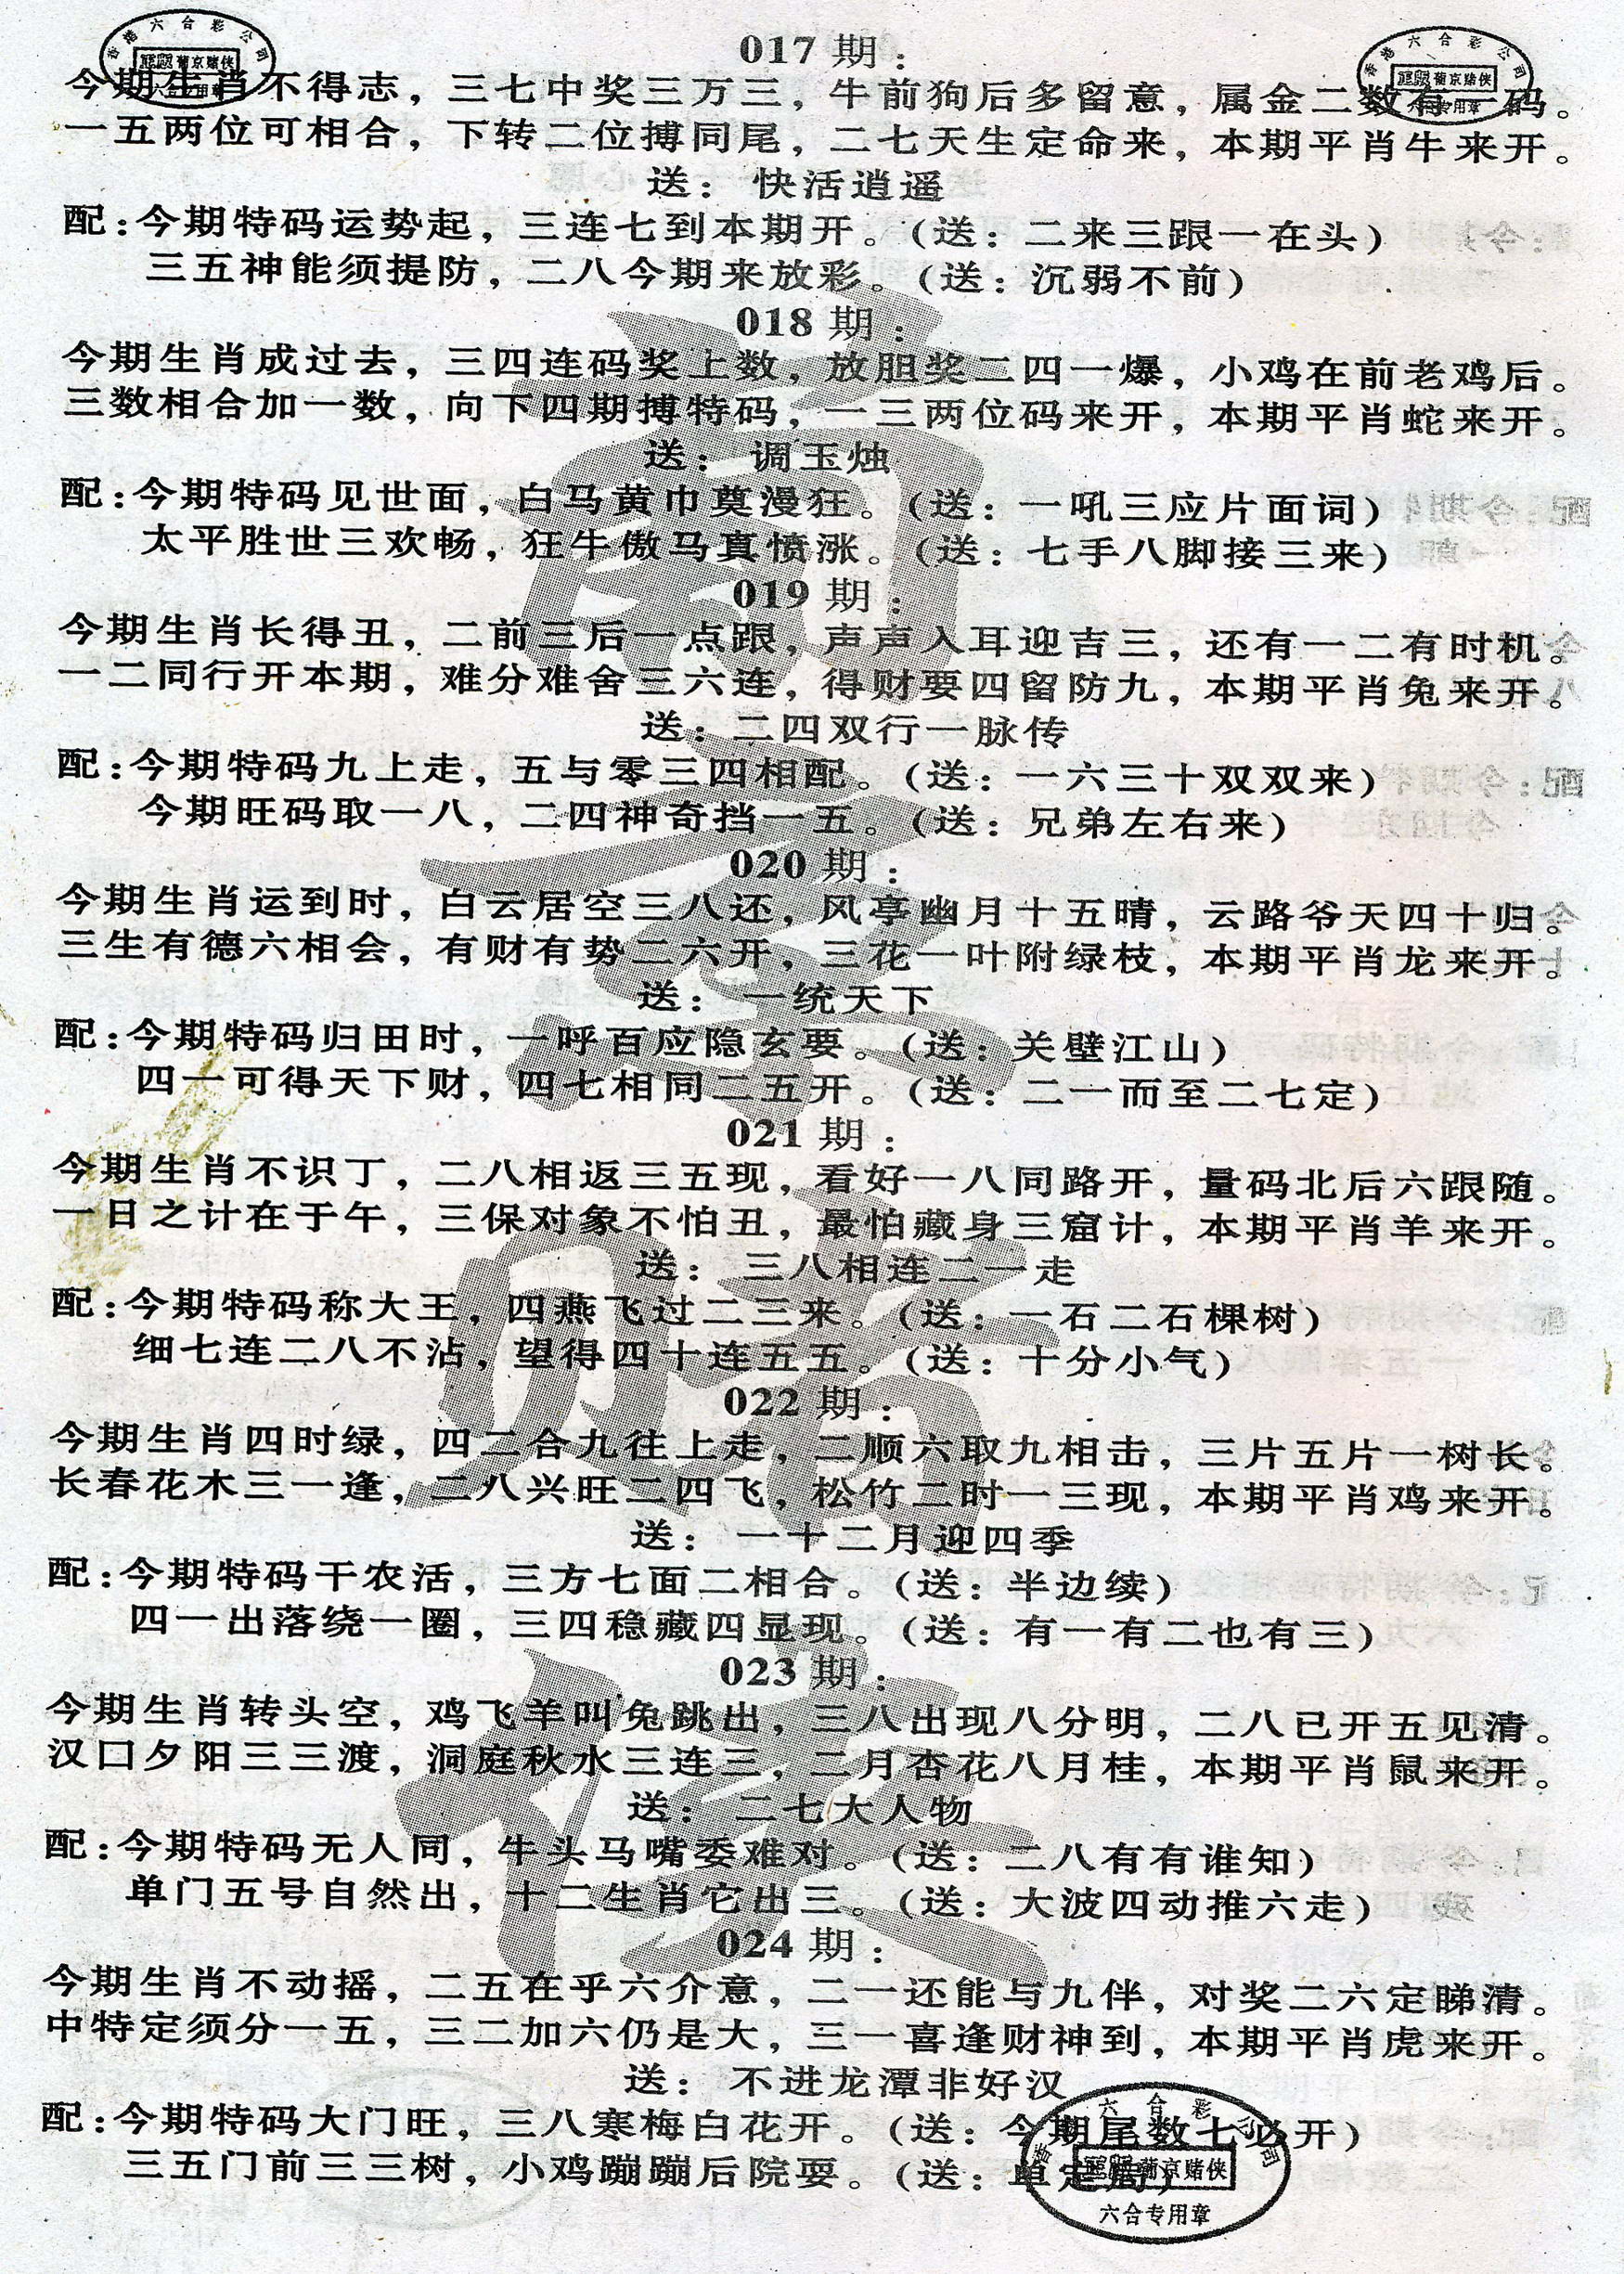 017期：
今期生肖不得志，三七中奖三万三，牛前狗后多留意，属金二数有一码。
一五两位可相合，下转二位搏同尾，二七天生定命来，本期平肖牛来开。
送：快活逍遥
配：今期特码运势起，三连七到本期开。（送：二来三跟一在头）
三五神能须提防，二八今期来放彩。（送：沉弱不前）
018期：
今期生肖成过去，三四连码奖上数，放胆奖二四一爆，小鸡在前老鸡后。
三数相合加一数，向下四期搏特码，一三两位码来开，本期平肖蛇来开。
送：调玉烛
配：今期特码见世面，白马黄巾奠漫狂。（送：一吼三应片面词）
太平胜世三欢畅，狂牛傲马真愤涨。（送：七手八脚接三来）
019期：
今期生肖长得丑，二前三后一点跟，声声入耳迎吉三，还有一二有时机。
一二同行开本期，难分难舍三六连，得财要四留防九，本期平肖兔来开。
送：二四双行一脉传
配：今期特码九上走，五与零三四相配。（送：一六三十双双来）
今期旺码取一八，二四神奇挡一五。（送：兄弟左右来）
020期：
今期生肖运到时，白云居空三八还，风亭幽月十五晴，云路爷天四十归。
三生有德六相会，有财有势二六开，三花一叶附绿枝，本期平肖龙来开。
送：一统天下
配：今期特码归田时，一呼百应隐玄要。（送：关壁江山）
四一可得天下财，四七相同二五开。（送：二一而至二七定）
021期：
今期生肖不识丁，二八相返三五现，看好一八同路开，量码北后六跟随。
一日之计在于午，三保对象不怕丑，最怕藏身三窟计，本期平肖羊来开。
送：三八相连二一走
配：今期特码称大王，四燕飞过二三来。（送：一石二石棵树）
细七连二八不沾，望得四十连五五。（送：十分小气）
022期：
今期生肖四时绿，四二合九往上走，二顺六取九相击，三片五片一树长。
长春花木三一逢，二八兴旺二四飞，松竹二时一三现，本期平肖鸡来开。
送：一十二月迎四季
配：今期特码干农活，三方七面二相合。（送：半边续）
四一出落绕一圈，三四稳藏四显现。（送：有一有二也有三）
023期：
今期生肖转头空，鸡飞羊叫兔跳出，三八出现八分明，二八已开五见清。
汉口夕阳三三渡，洞庭秋水三连三，二月杏花八月桂，本期平肖鼠来开。
送：二七大人物
配：今期特码无人同，牛头马嘴委难对。（送：二八有有谁知）
单门五号自然出，十二生肖它出三。（送：大波四动推六走）
024期：
今期生肖不动摇，二五在乎六介意，二一还能与九伴，对奖二六定睇清。
中特定须分一五，三二加六仍是大，三一喜逢财神到，本期平肖虎来开。
送：不进龙潭非好汉
配：今期特码大门旺，三八寒梅白花开。（送：今期尾数七必开）
三五门前三三树，小鸡蹦蹦后院耍。（送：单定局）
香港六合彩公司
葡京赌侠
六合专用章